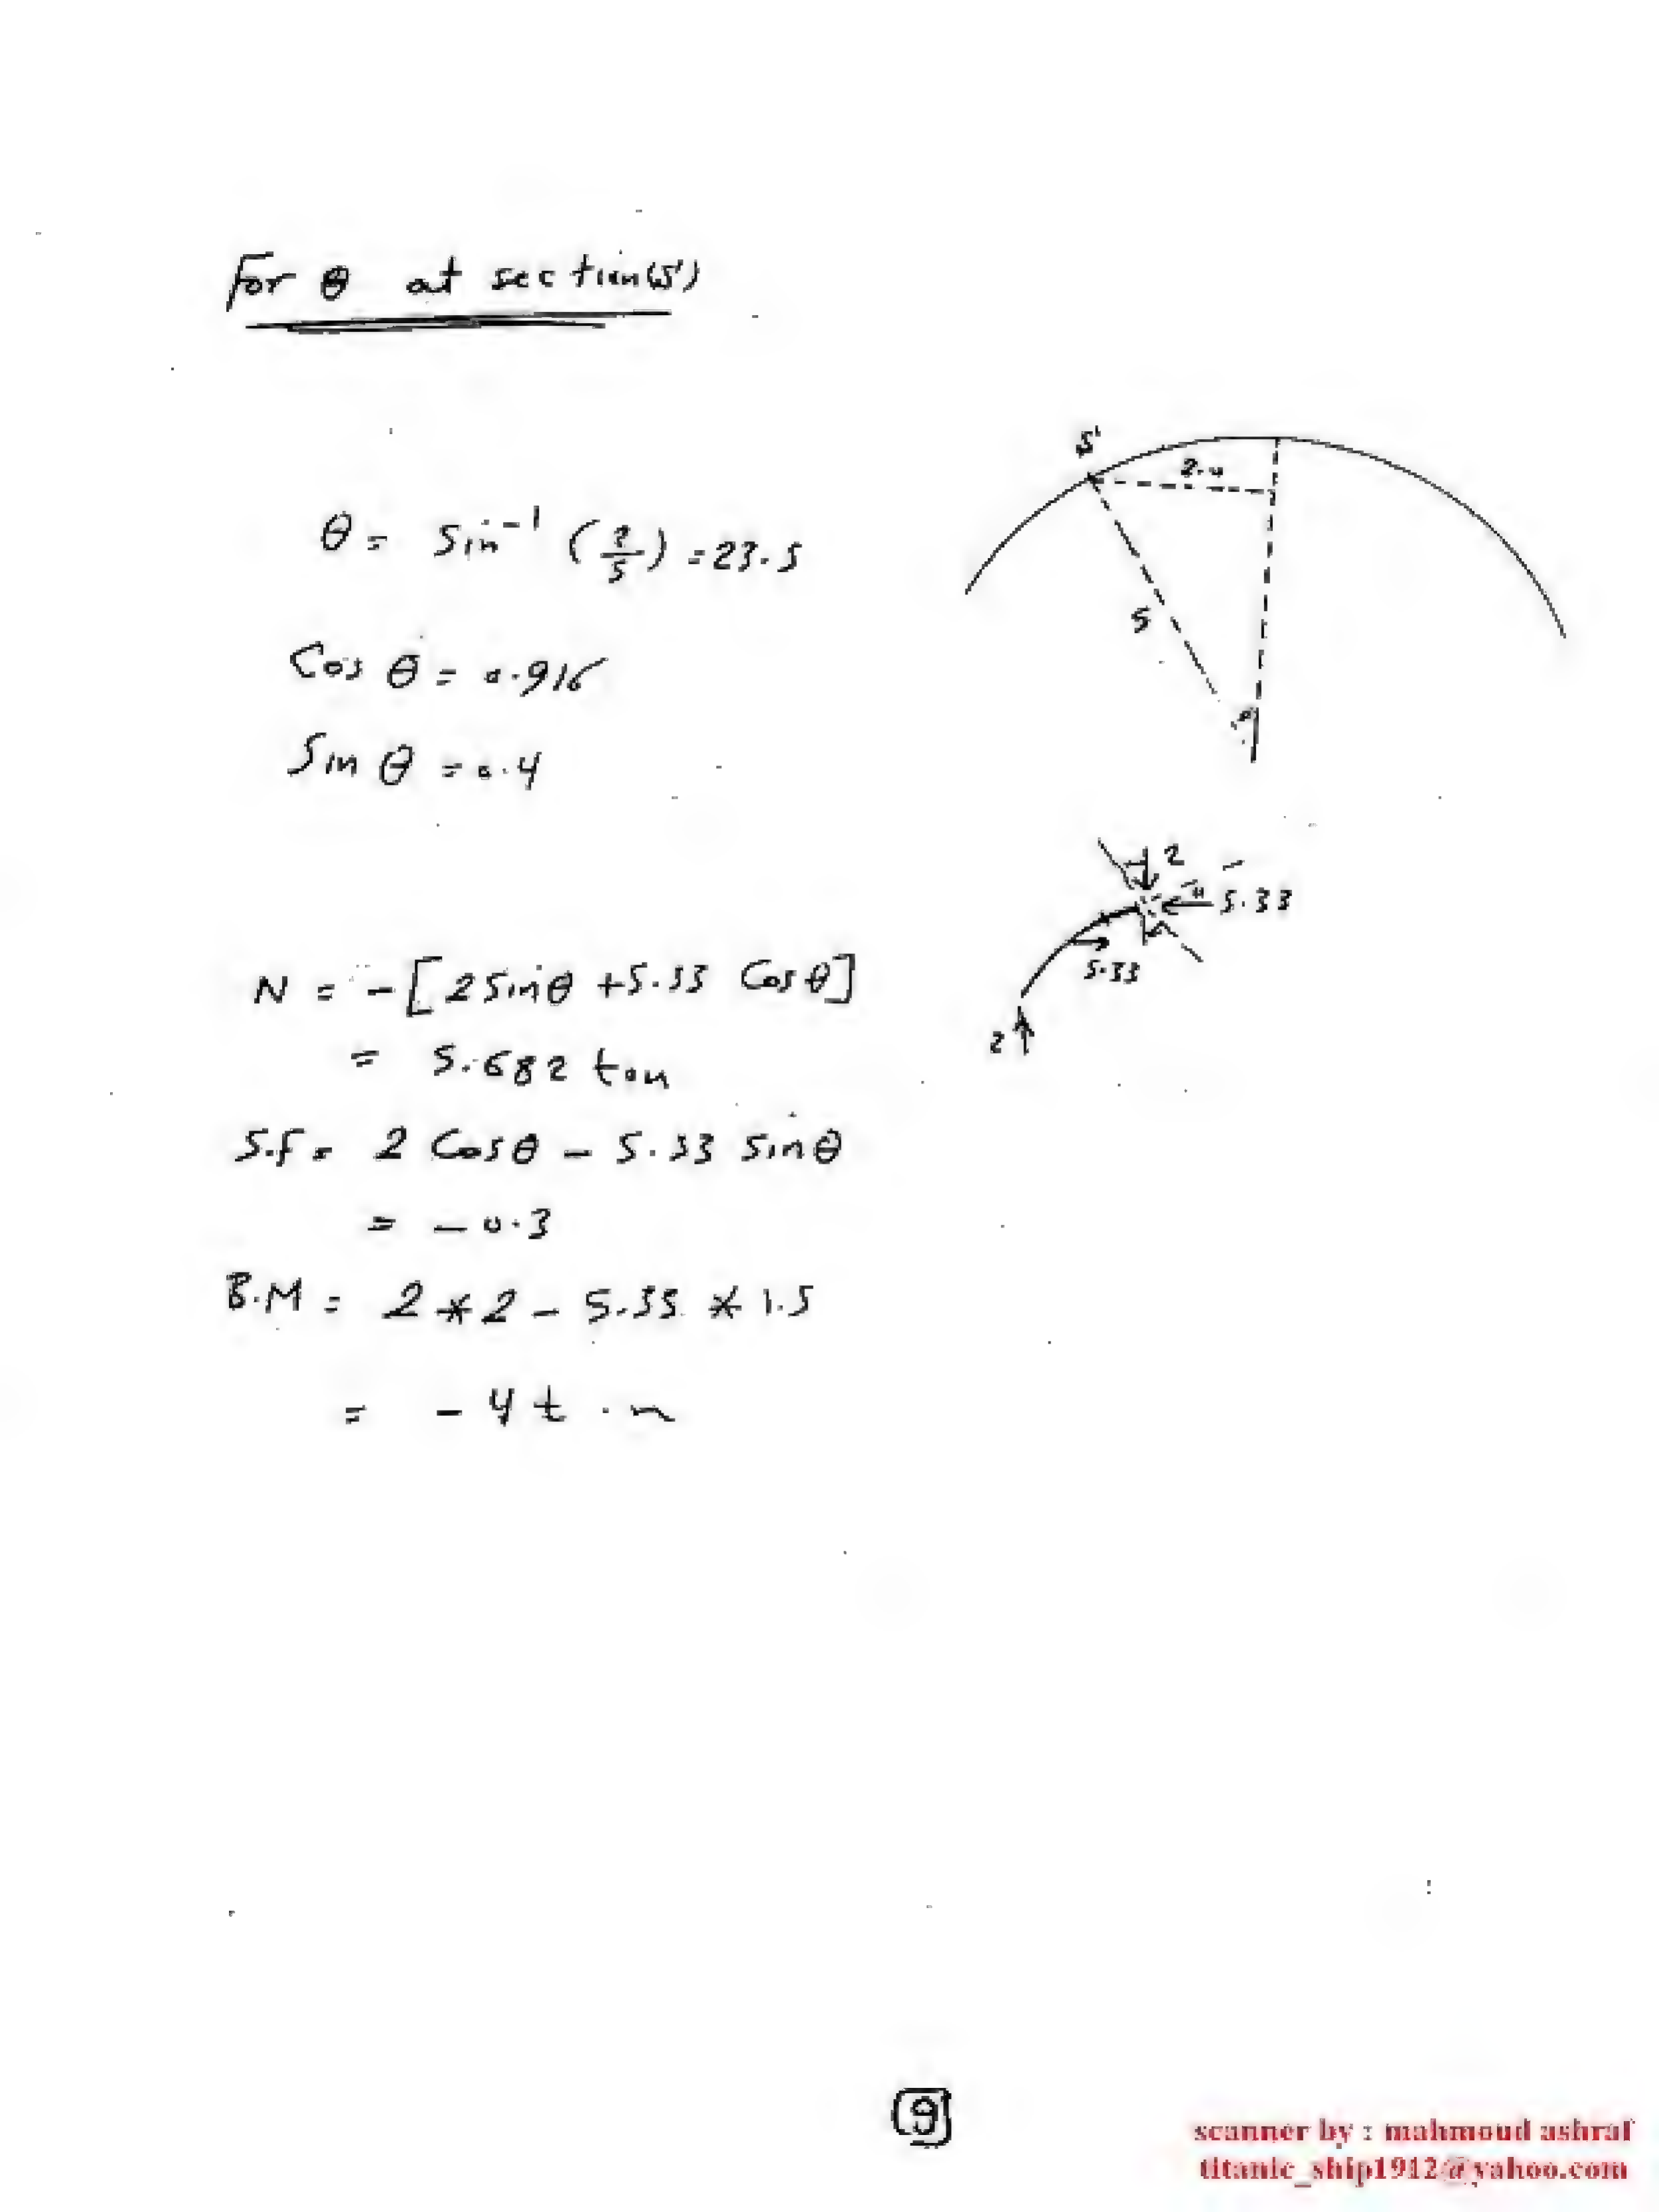 For θ at section(S')
S'
2.0
θ = Sin⁻¹ (2/5) = 23.5
5
Cos θ = 0.916
Sin θ = 0.4
2
5.33
5.33
2
N = -[2 Sin θ + 5.33 Cos θ]
= 5.682 ton
S.f = 2 Cos θ - 5.33 Sin θ
= - 0.3
B.M = 2 * 2 - 5.33 * 1.5
= - 4 t . m
9
scanner by : mahmoud ashraf
titanic_ship1912@yahoo.com